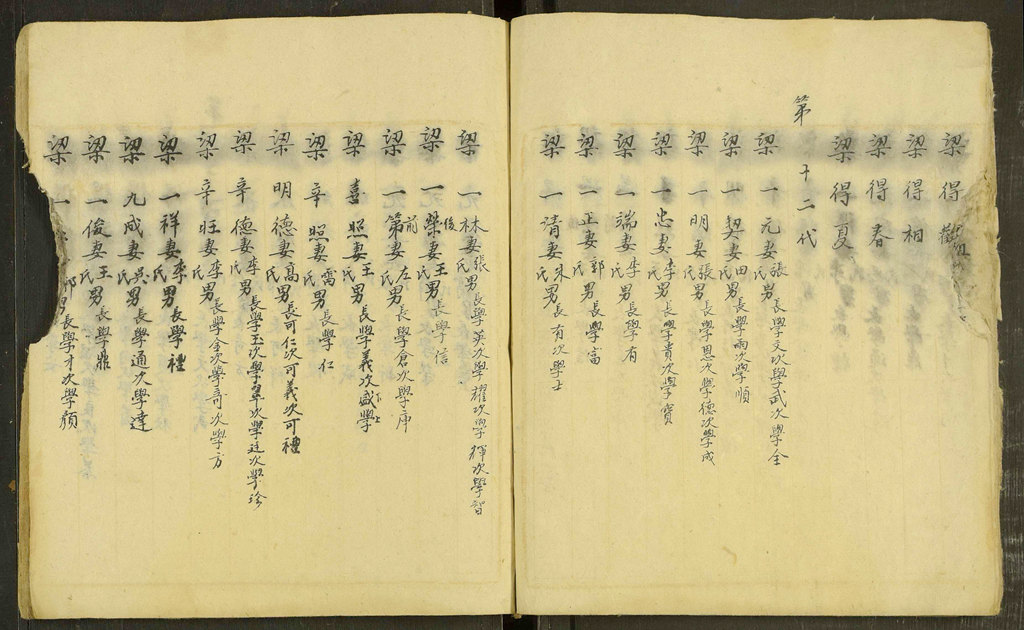 梁得
梁得相
梁得春
梁得夏
第十二代
梁一元妻張氏男長學文次學武次學全
梁一契妻田氏男長學雨次學順
梁一明妻張氏男長學思次學德次學成
梁一忠妻李氏男長學貴次學寶
梁一端妻李氏男長學有
梁一正妻郭氏男長學富
梁一清妻朱氏男長有次學士
梁一林妻張氏男長學英次學耀次學輝次學智
梁一榮後妻王氏男長學信
梁一第前妻左氏男長學倉次學庫
梁喜照妻王氏男長學義次盛學
梁辛照妻喬氏男長學仁
梁明德妻高氏男長可仁次可義次可禮
梁辛德妻李氏男長學玉次學翠次學廷次學珍
梁辛旺妻李氏男長學金次學哥次學方
梁一祥妻李氏男長學禮
梁九成妻吳氏男長學通次學達
梁一俊妻王氏男長學鼎
梁一 氏郭男長學才次學顏